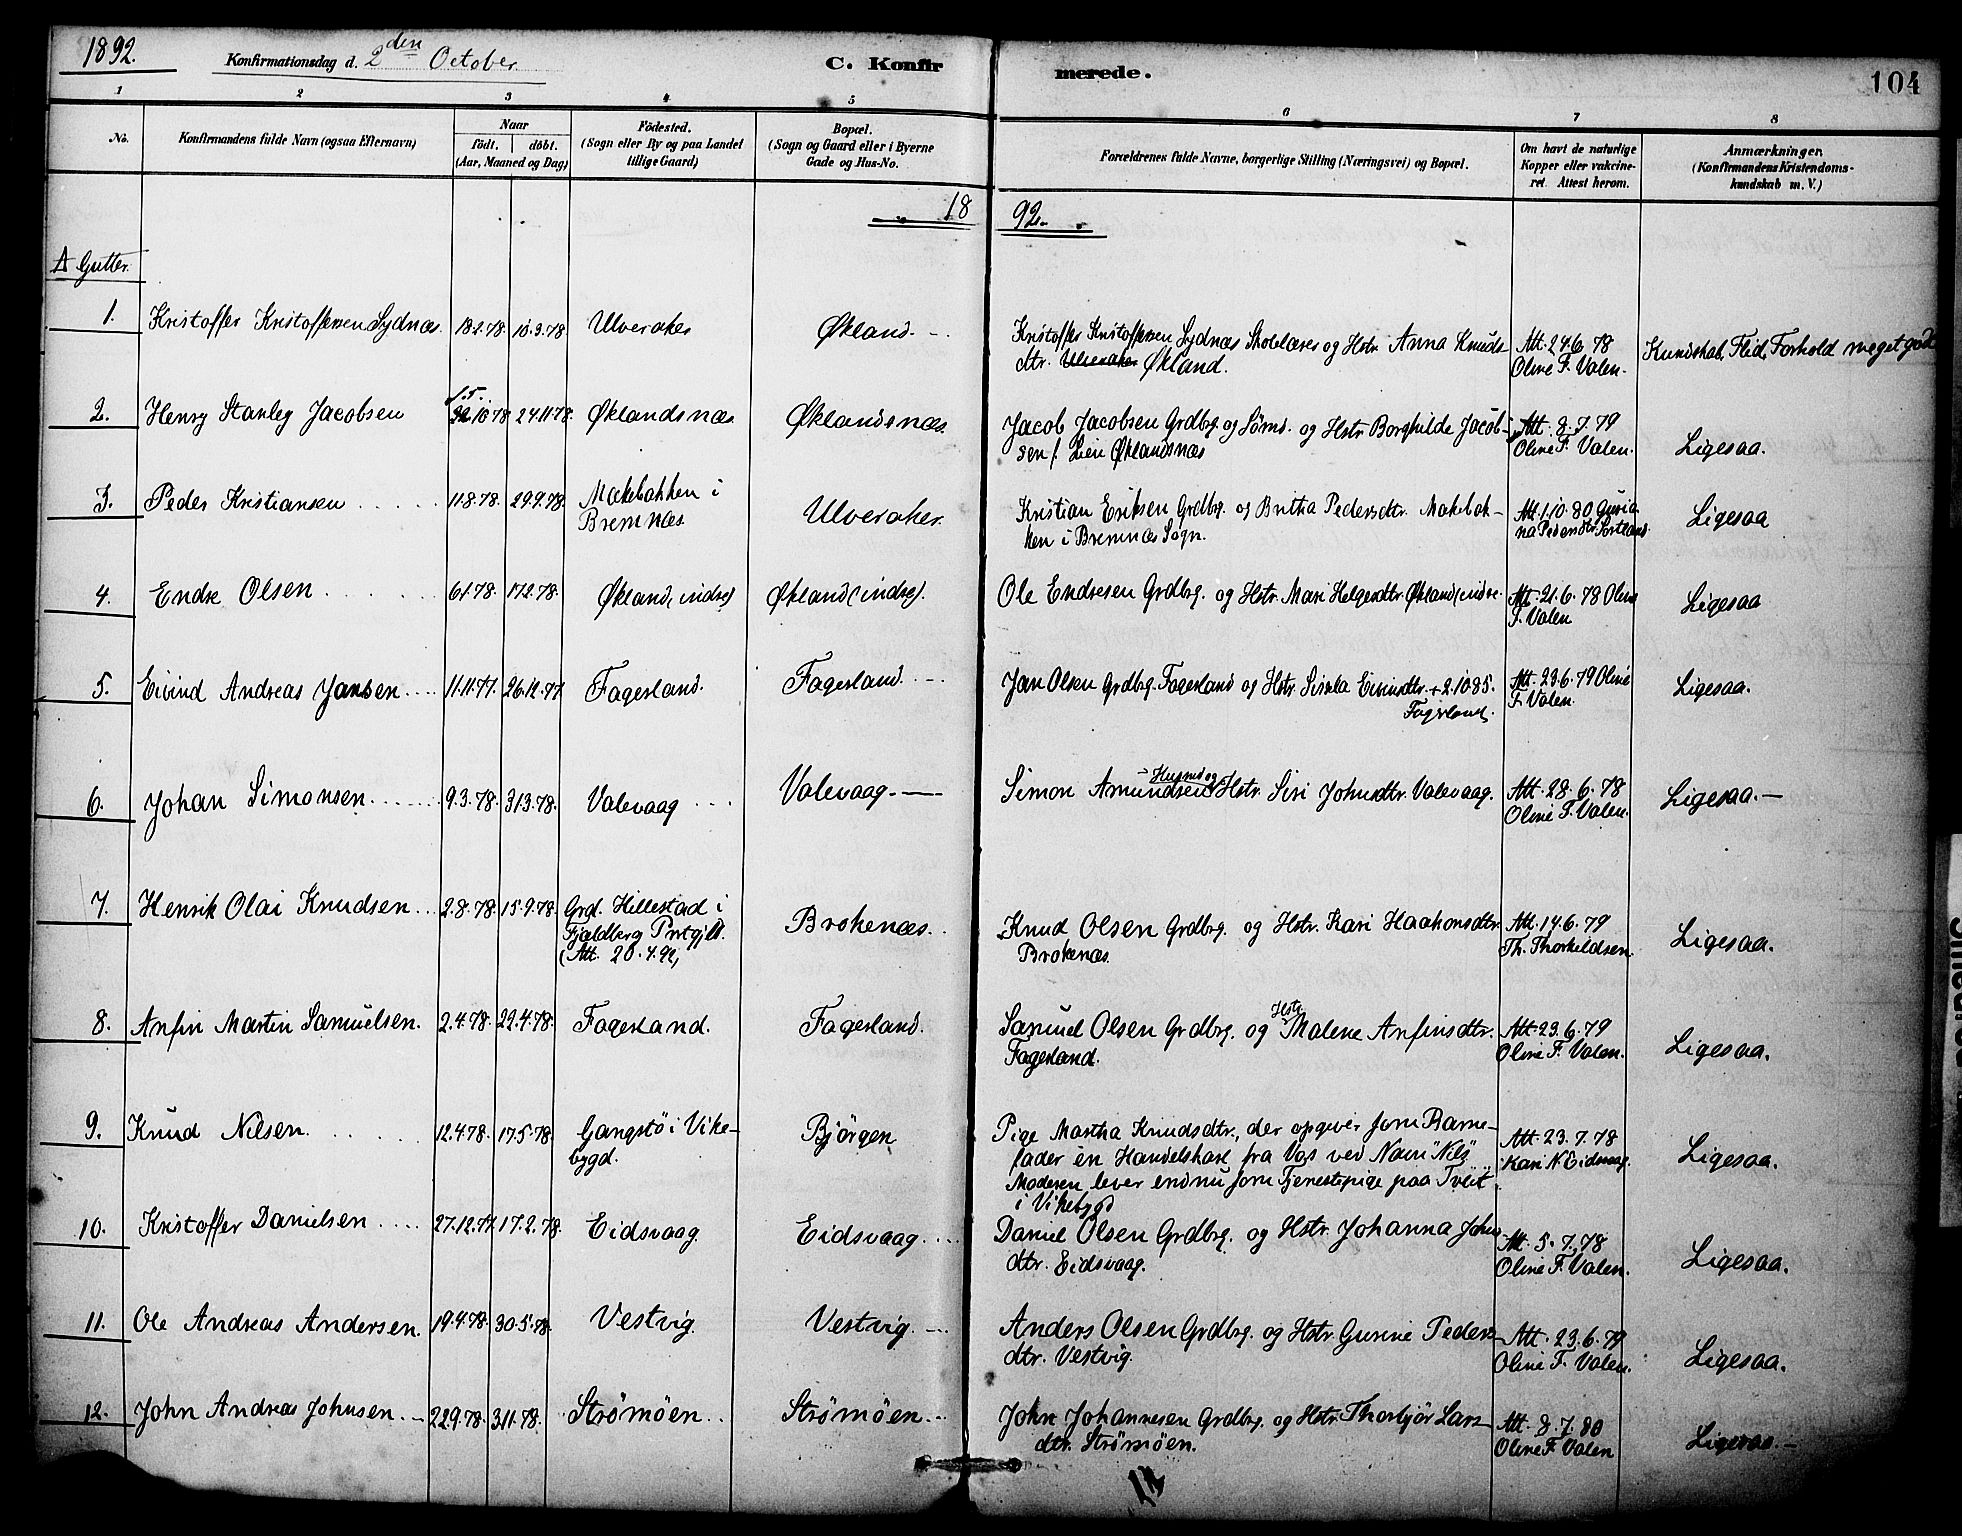 1892. Konfirmationsdag d. 2den October. C. Konfirmerede. 104
1 2 3 4 5 6 7 8
No. Konfirmandens fulde Navn (ogsaa Efternavn) Naar födt. döbt. (Aar, Maaned og Dag) Födested. (Sogn eller By og paa Landet tillige Gaard) Bopæl. (Sogn og Gaard eller i Byerne Gade og Hus-No. Forældrenes fulde Navne, borgerlige Stilling (Næringsvei) og Bopæl. Om havt de naturlige Kopper eller vakcineret. Attest herom. Anmærkninger. (Konfirmandens Kristendomskundskab m. V.)
1892.
A Gutter.
1. Kristoffer Kristoffersen Sydnæs. 18.2.78. 10.3.78 Ulveraker Økland. Kristoffer Kristoffersen Sydnæs Skolelærer og Hstr. Anna Knuds- Att. 24.6.78 Kundskab, Flid, Forhold meget god
dtr. Ulveraker Økland. Oline F. Valen.
2. Henry Stanley Jacobsen 15. 10.78. 24.11.78. Øklandsnæs Øklandsnæs. Jacob Jacobsen Grdbrg. og Sømd. og Hstr. Borghilde Jacob- Att. 8.7.79 Ligesaa.
sen f. Lien Øklandsnæs Oline F. Valen.
3. Peder Kristiansen 11.8.78. 29.9.78. Møkebakken i Ulveraker. Kristian Eriksen Grdbrg. og Britha Pedersdtr. Møkebak- Att. 1.10.80 Guria- Ligesaa
Bremnæs. ken i Bremnæs Sogn. na Pedersdtr. Sortland
4. Endre Olsen 6.1.78. 17.2.78. Økland (indre) Økland (indre). Ole Endresen Grdbrg. og Hstr. Mari Helgesdtr. Økland (indre. Att. 21.6.78 Oline Ligesaa
F. Valen
5. Eivind Andreas Jansen 11.11.77. 26.12.77 Fagerland. Fagerland. Jan Olsen Grdbrg. Fagerland og Hstr. Sirika Eivindsdtr. + 2.10 85. Att. 23.6.79 Oline Ligesaa.
Fagerland. F. Valen.
6. Johan Simonsen 9.3.78. 31.3.78. Valevaag Valevaag. Simon Amundsen Husmd. og Hstr. Siri Johnsdtr. Valevaag. Att. 28.6.78 Ligesaa.
Oline F. Valen.
7. Henrik Olai Knudsen 2.8.78. 15.9.78. Grd. Hillestad i Brokenæs. Knud Olsen Grdbrg. og Hstr. Kari Haakonsdtr. Att. 14.6.79 Ligesaa.
Fjeldberg Prstgjld. Brokenæs. Th. Thorkildsen.
(Att. 20.4.92)
8. Anfin Martin Samuelsen. 2.4.78. 22.4.78. Fagerland. Fagerland. Samuel Olsen Grdbrg. og Hstr. Malene Anfinsdtr. Att. 23.6.79 Ligesaa.
Fagerland. Oline F. Valen.
9. Knud Nilsen. 12.4.78. 17.5.78. Gangstø i Vike- Bjørgen Pige Martha Knudsdtr., der opgiver som Barne- Att. 23.7.78 Ligesaa.
bygd. fader en Handelskarl fra Vos ved Navn "Nils" Kari N Eidsvaag.
Moderen lever endnu som Tjenestepige paa Tveit
i Vikebygd
10. Kristoffer Danielsen 27.12.77. 17.2.78. Eidsvaag. Eidsvaag. Daniel Olsen Grdbrg. og Hstr. Johanna Johns- Att. 5.7.78 Ligesaa.
dtr. Eidsvaag. Oline F. Valen.
11. Ole Andreas Andersen. 19.4.78. 30.5.78. Vestvig. Vestvig. Anders Olsen Grdbrg. og Hstr. Gurine Peders- Att. 23.6.79 Ligesaa.
dtr. Vestvig. Oline F. Valen.
12. John Andreas Johnsen. 22.9.78. 3.11.78. Strømøen Strømøen. John Johannesen Grdbrg. og Hstr. Thorbjør Lars- Att. 8.7.80 Ligesaa.
dtr. Strømøen. Oline F. Valen